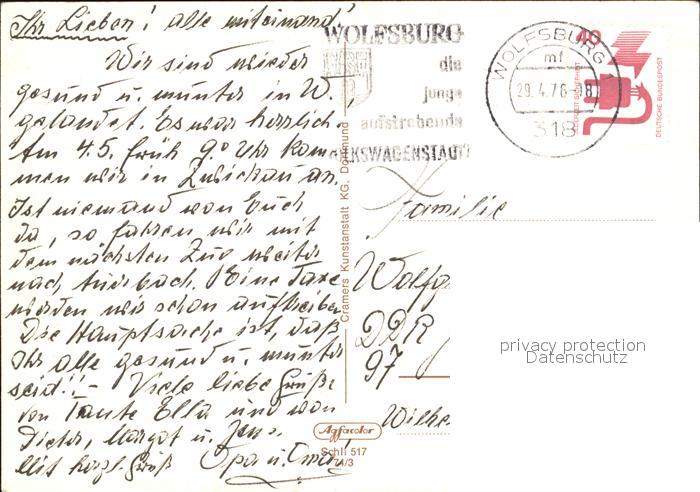 Ihr Lieben! alle miteinand!
Wir sind wieder
gesund u. munter in W.
gelandet. Es war herrlich.
Am 4.5. früh 9.° Uhr kom-
men wir in Zwickau an.
Ist niemand von Euch
da, so fahren wir mit
dem nächsten Zug weiter
nach Auerbach. Eine Taxe
werden wir schon auftreiben
Die Hauptsache ist, daß
Ihr alle gesund u. munter
seid!! - Viele liebe Grüße
von Tante Ella und von
Dieter, Margot u. Jens.
Mit herzl. Gruß Opa u. Oma!
WOLFSBURG
die
junge
aufstrebende
VOLKSWAGENSTADT
WOLFSBURG
mf
29.4.76-18
318
40
DEUTSCHE BUNDESPOST
Cramers Kunstanstalt KG, Dortmund
Familie
Wolfg
DDR
97
Wilhe
Agfacolor
Schü 517
privacy protection
Datenschutz